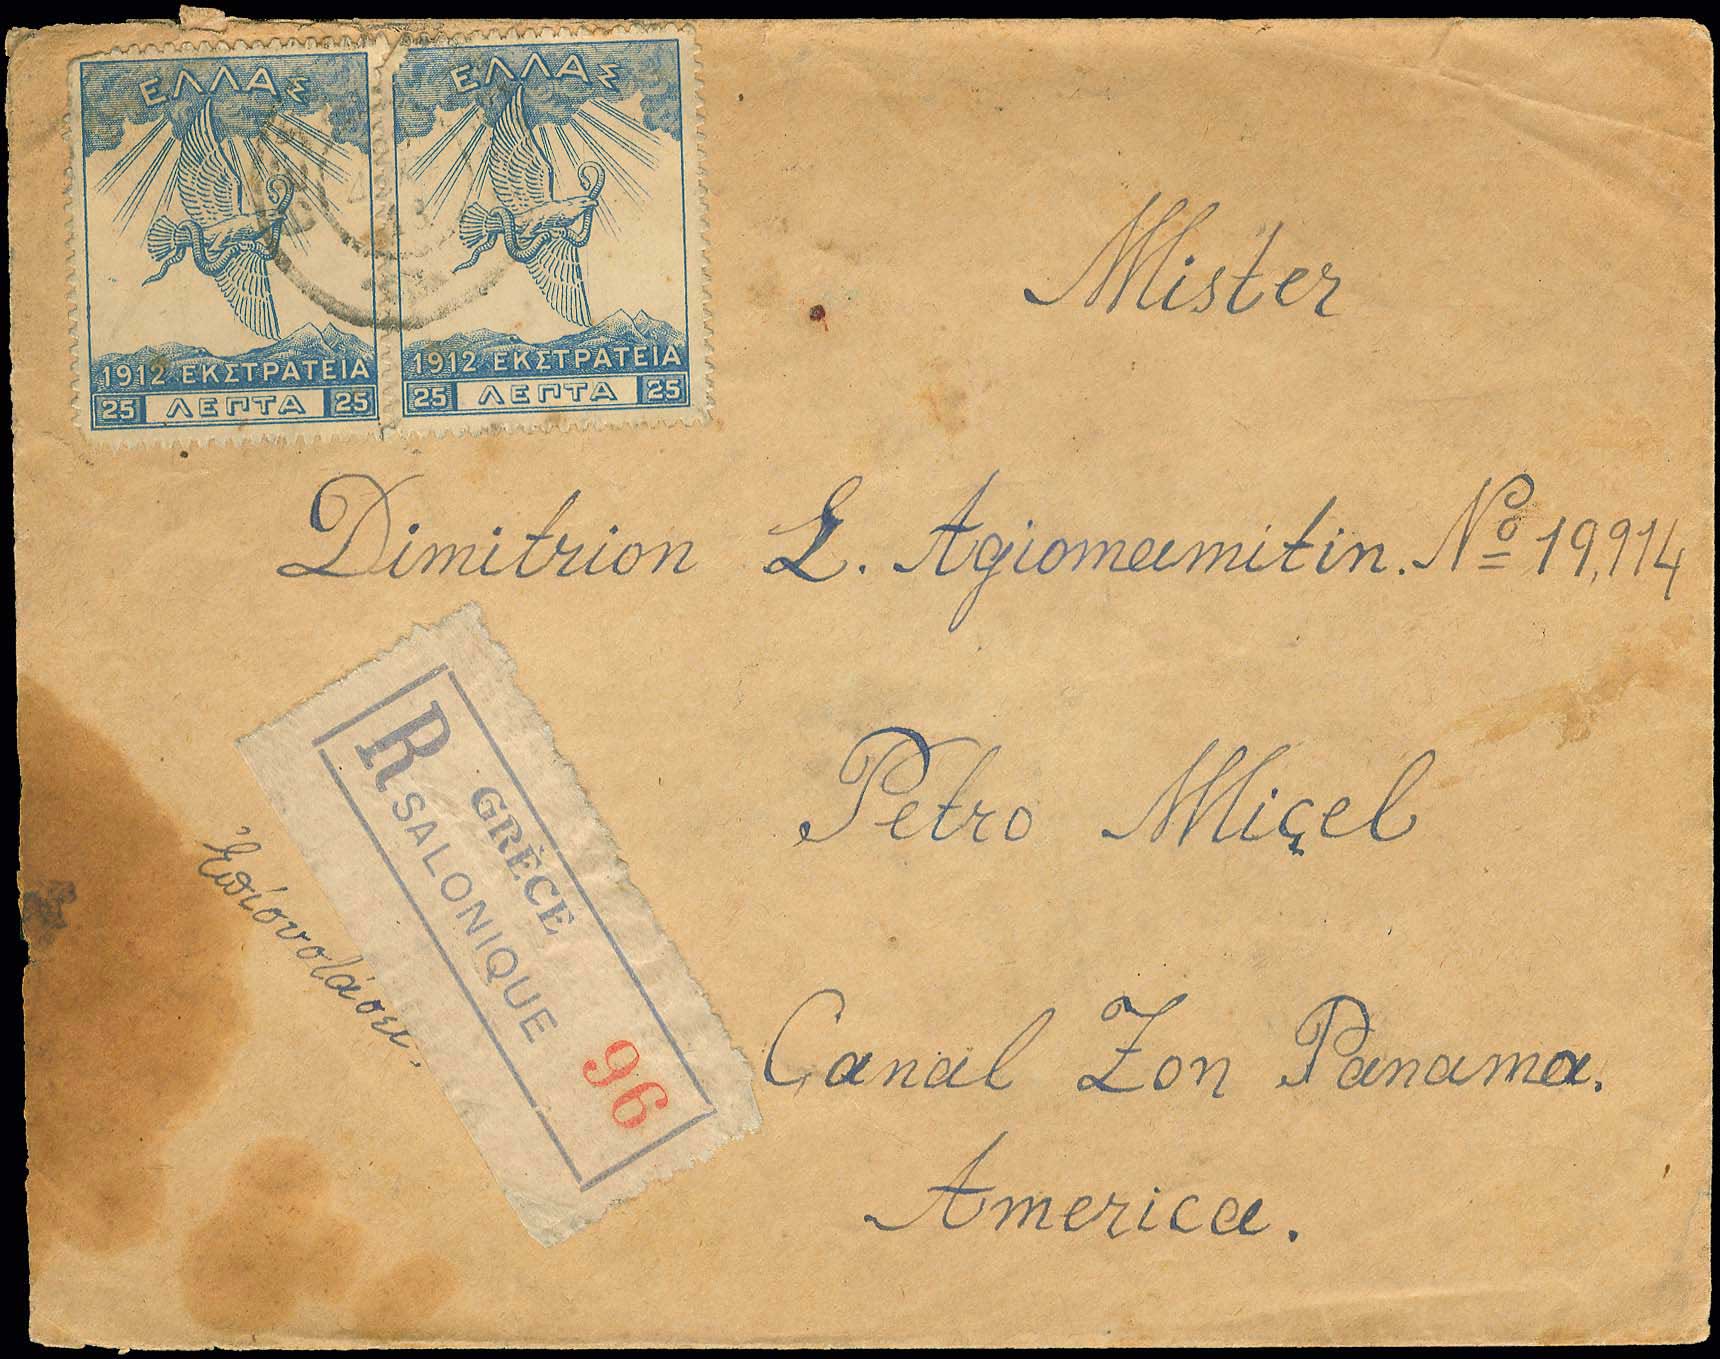 ΕΛΛΑΣ
1912 ΕΚΣΤΡΑΤΕΙΑ
25 ΛΕΠΤΑ 25
ΕΛΛΑΣ
1912 ΕΚΣΤΡΑΤΕΙΑ
25 ΛΕΠΤΑ 25
Mister
Dimitrion L. Agiomamitin. Nº 19,914
Petro Miçel
Canal Zon Panama.
America.
R GRÈCE
SALONIQUE
96